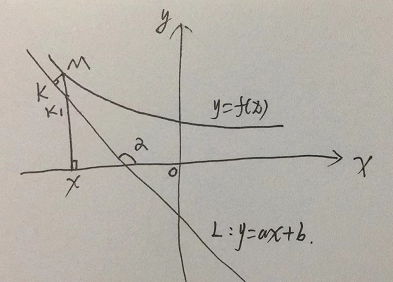 y
M
K
K1
y=f(x)
2
x
o
X
L:y=ax+b.